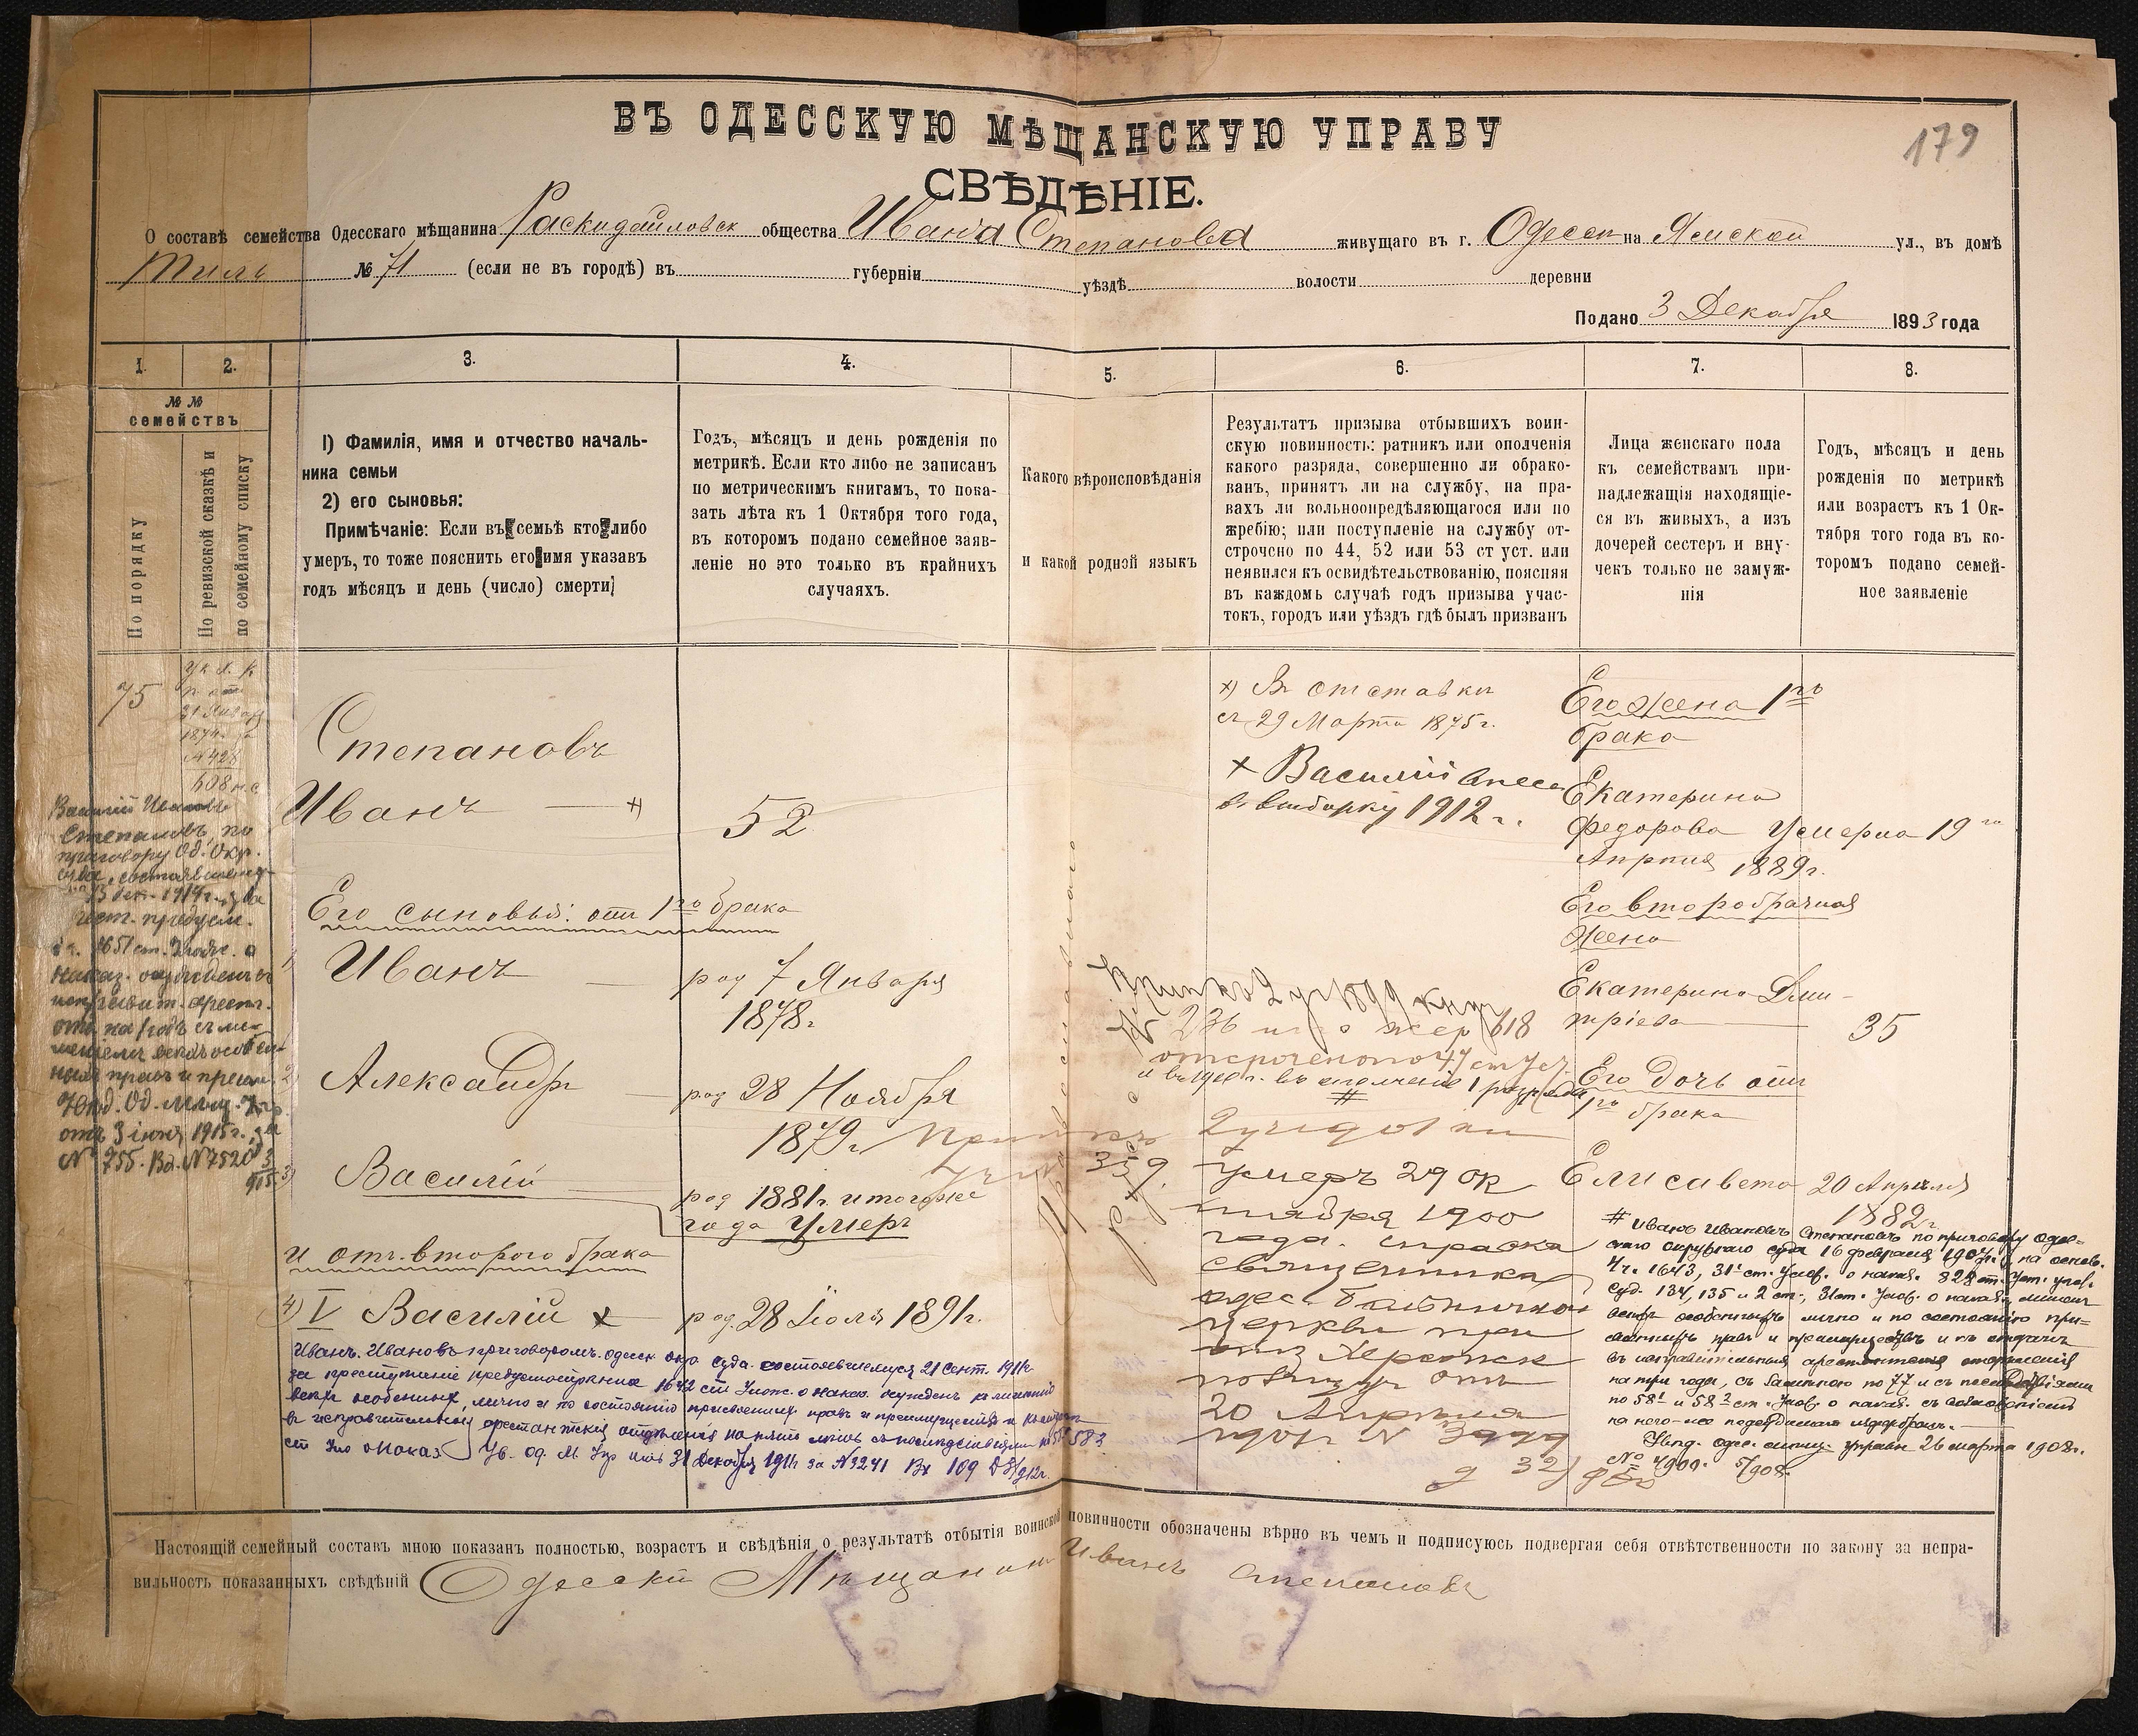 179
ВЪ ОДЕССКУЮ МѢЩАНСКУЮ УПРАВУ
СВѢДѢНІЕ.
О составѣ семейства Одесскаго мѣщанина Раскидайловск общества Ивана Степанова живущаго въ г. Одессѣ на Ямской ул., въ домѣ
Тиль № 71 (если не въ городѣ) въ губерніи уѣздѣ волости деревни
Подано 3 Декабря 1893 года
1. 2. 3. 4. 5. 6. 7. 8.
№№
семействъ
По порядку
По ревизской сказкѣ и
по семейному списку
I) Фамилія, имя и отчество началь-
ника семьи
2) его сыновья:
Примѣчаніе: Если въ семьѣ кто либо
умеръ, то тоже пояснить его имя указавъ
годъ мѣсяцъ и день (число) смерти
Годъ, мѣсяцъ и день рожденія по
метрикѣ. Если кто либо не записанъ
по метрическимъ книгамъ, то пока-
зать лѣта къ 1 Октября того года,
въ которомъ подано семейное заяв-
леніе но это только въ крайнихъ
случаяхъ.
Какого вѣроисповѣданія
и какой родной языкъ
Результатъ призыва отбывшихъ воин-
скую повинность: ратникъ или ополченія
какого разряда, совершенно ли обрако-
ванъ, принятъ ли на службу, на пра-
вахъ ли вольноопредѣляющагося или по
жребію; или поступленіе на службу от-
строчено по 44, 52 или 53 ст уст. или
неявился къ освидѣтельствованію, поясняя
въ каждомъ случаѣ годъ призыва учас-
токъ, городъ или уѣздъ гдѣ былъ призванъ
Лица женскаго пола
къ семействамъ при-
надлежащія находящіе-
ся въ живыхъ, а изъ
дочерей сестеръ и вну-
чекъ только не замуж-
нія
Годъ, мѣсяцъ и день
рожденія по метрикѣ
или возрастъ къ 1 Ок-
тября того года въ ко-
торомъ подано семей-
ное заявленіе
75
31 Января
1874
№ 428
608
Василій Ивановъ
Степановъ, по
приговору Од. Окр.
суда, состоявшемуся
1651 ст. Улож. о
наказ.
арест.
отд. на 1 годъ съ ли-
шеніемъ всѣхъ особен-
ныхъ правъ и преим.
Увѣд. Од. Мѣщ. Упр.
отъ 3 іюня 1915 г. за
№ 755. Вх. № 7520
Степановъ
Иванъ — +) 52
Его сыновья: отъ 1го брака
1) Иванъ — род 7 Января
1878 г
2) Александръ — род 28 Ноября
1879 г
3) Василій род 1881 г. и того же
года умеръ
и отъ второго брака
4) V Василій + род. 28 Іюля 1891 г.
Иванъ Ивановъ приговоромъ одесск окр суда состоявшемуся 21 Сент. 1911 г
за преступленіе предусмотрѣнное 1642 ст Улож. о наказ. осужденъ къ лишенію
всѣхъ особенныхъ, лично и по состоянію присвоенныхъ правъ и преимуществъ и къ отдачѣ
въ исправительныя арестантскія отдѣленія
ст Уло о Наказ. Ув. Од. М. Упр отъ 31 Декабря 1911 за № 3241 Вх 109
+) Въ отставкѣ
съ 29 Марта 1875 г.
+ Василій внесен
въ выборку 1912 г.
№ 236 жер 618
отсроченопо 47 ст Уст.
и въ 1900 г. въ ополченіе 1 разряда
#
359
умеръ 29 ок
тября 1900
года. справка
священника
одес. больничной
церкви при
Херсонск
отъ
20 Апрѣля
№ 3999
Его Жена 1го
брака
Екатерина
Федорова Умерла 19го
Апрѣля 1889 г.
Его второбрачная
жена
Екатерина Дми-
тріева — 35
Его Дочь отъ
1го брака
Елисавета 20 Апрѣля
1882 г
# Иванъ Ивановъ Степановъ по приговору Одес-
скаго окружнаго суда 16 февраля 1907 г. на основ.
4 ч. 1643, 31¹ ст. Улож. о наказ. 828 ст. Уст. угол.
Суд. 134, 135 и 2 ст., 31 ст. Улож. о наказ., лишенъ
всѣхъ особенныхъ лично и по состоянію при-
своенныхъ правъ и преимуществъ и къ отдачѣ
въ исправительныя арестантскія отдѣленія
на три года, съ замѣною по 77 и съ послѣдствіями
по 58¹ и 58² ст. Улож. о наказ. съ возложеніемъ
на него-же судебныхъ издержекъ.
Увѣд. Одес. мѣщ. управы 26 марта 1908 г.
№ 4909. 5/908.
Настоящій семейный составъ мною показанъ полностью, возрастъ и свѣдѣнія о результатѣ отбытія воинской повинности обозначены вѣрно въ чемъ и подписуюсь подвергая себя отвѣтственности по закону за непра-
вильность показанныхъ свѣдѣній Одесскій Мѣщанинъ Иванъ Степановъ